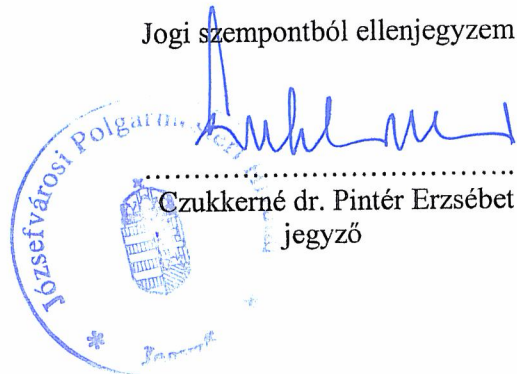 Jogi szempontból ellenjegyzem
Czukkerné dr. Pintér Erzsébet
jegyző
Józsefvárosi Polgármesteri